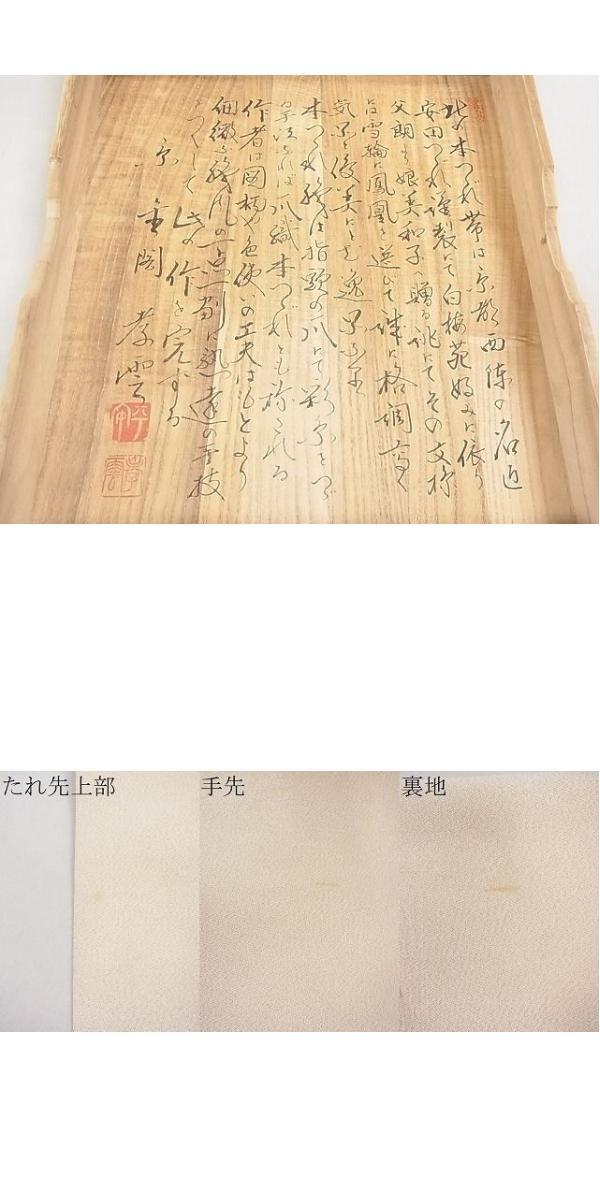 此の本つづれ帯は京都西陣の名匠
安田つづれ謹製にて白梅苑好みに依り
父朗より娘美和子へ贈る誂にてその文様
は雪輪に鳳凰を選びて誠に格調高く
気品と優美にとむ逸品なり
本つづれ織は指頭の爪にて
爪織本つづれとも称される
作者は図柄や色使いの工夫はもとより
細緻な織りの一点一劃に熟達の手技
をつくして此の作を完する
京 金閣 孝雲
たれ先上部
手先
裏地